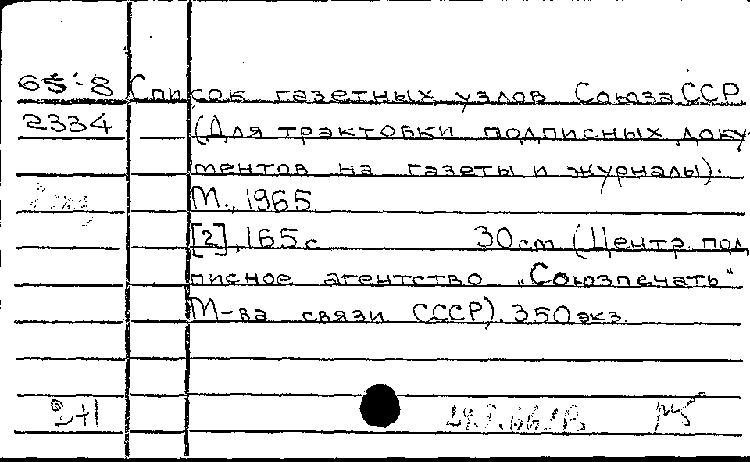 65-8 Список газетных узлов Союза ССР
2334 (Для трактовки подписных доку-
ментов на газеты и журналы).
М., 1965
[2], 165 с 30 см (Центр. под
писное агентство „Союзпечать"
М-ва связи СССР). 350 экз.
2+1